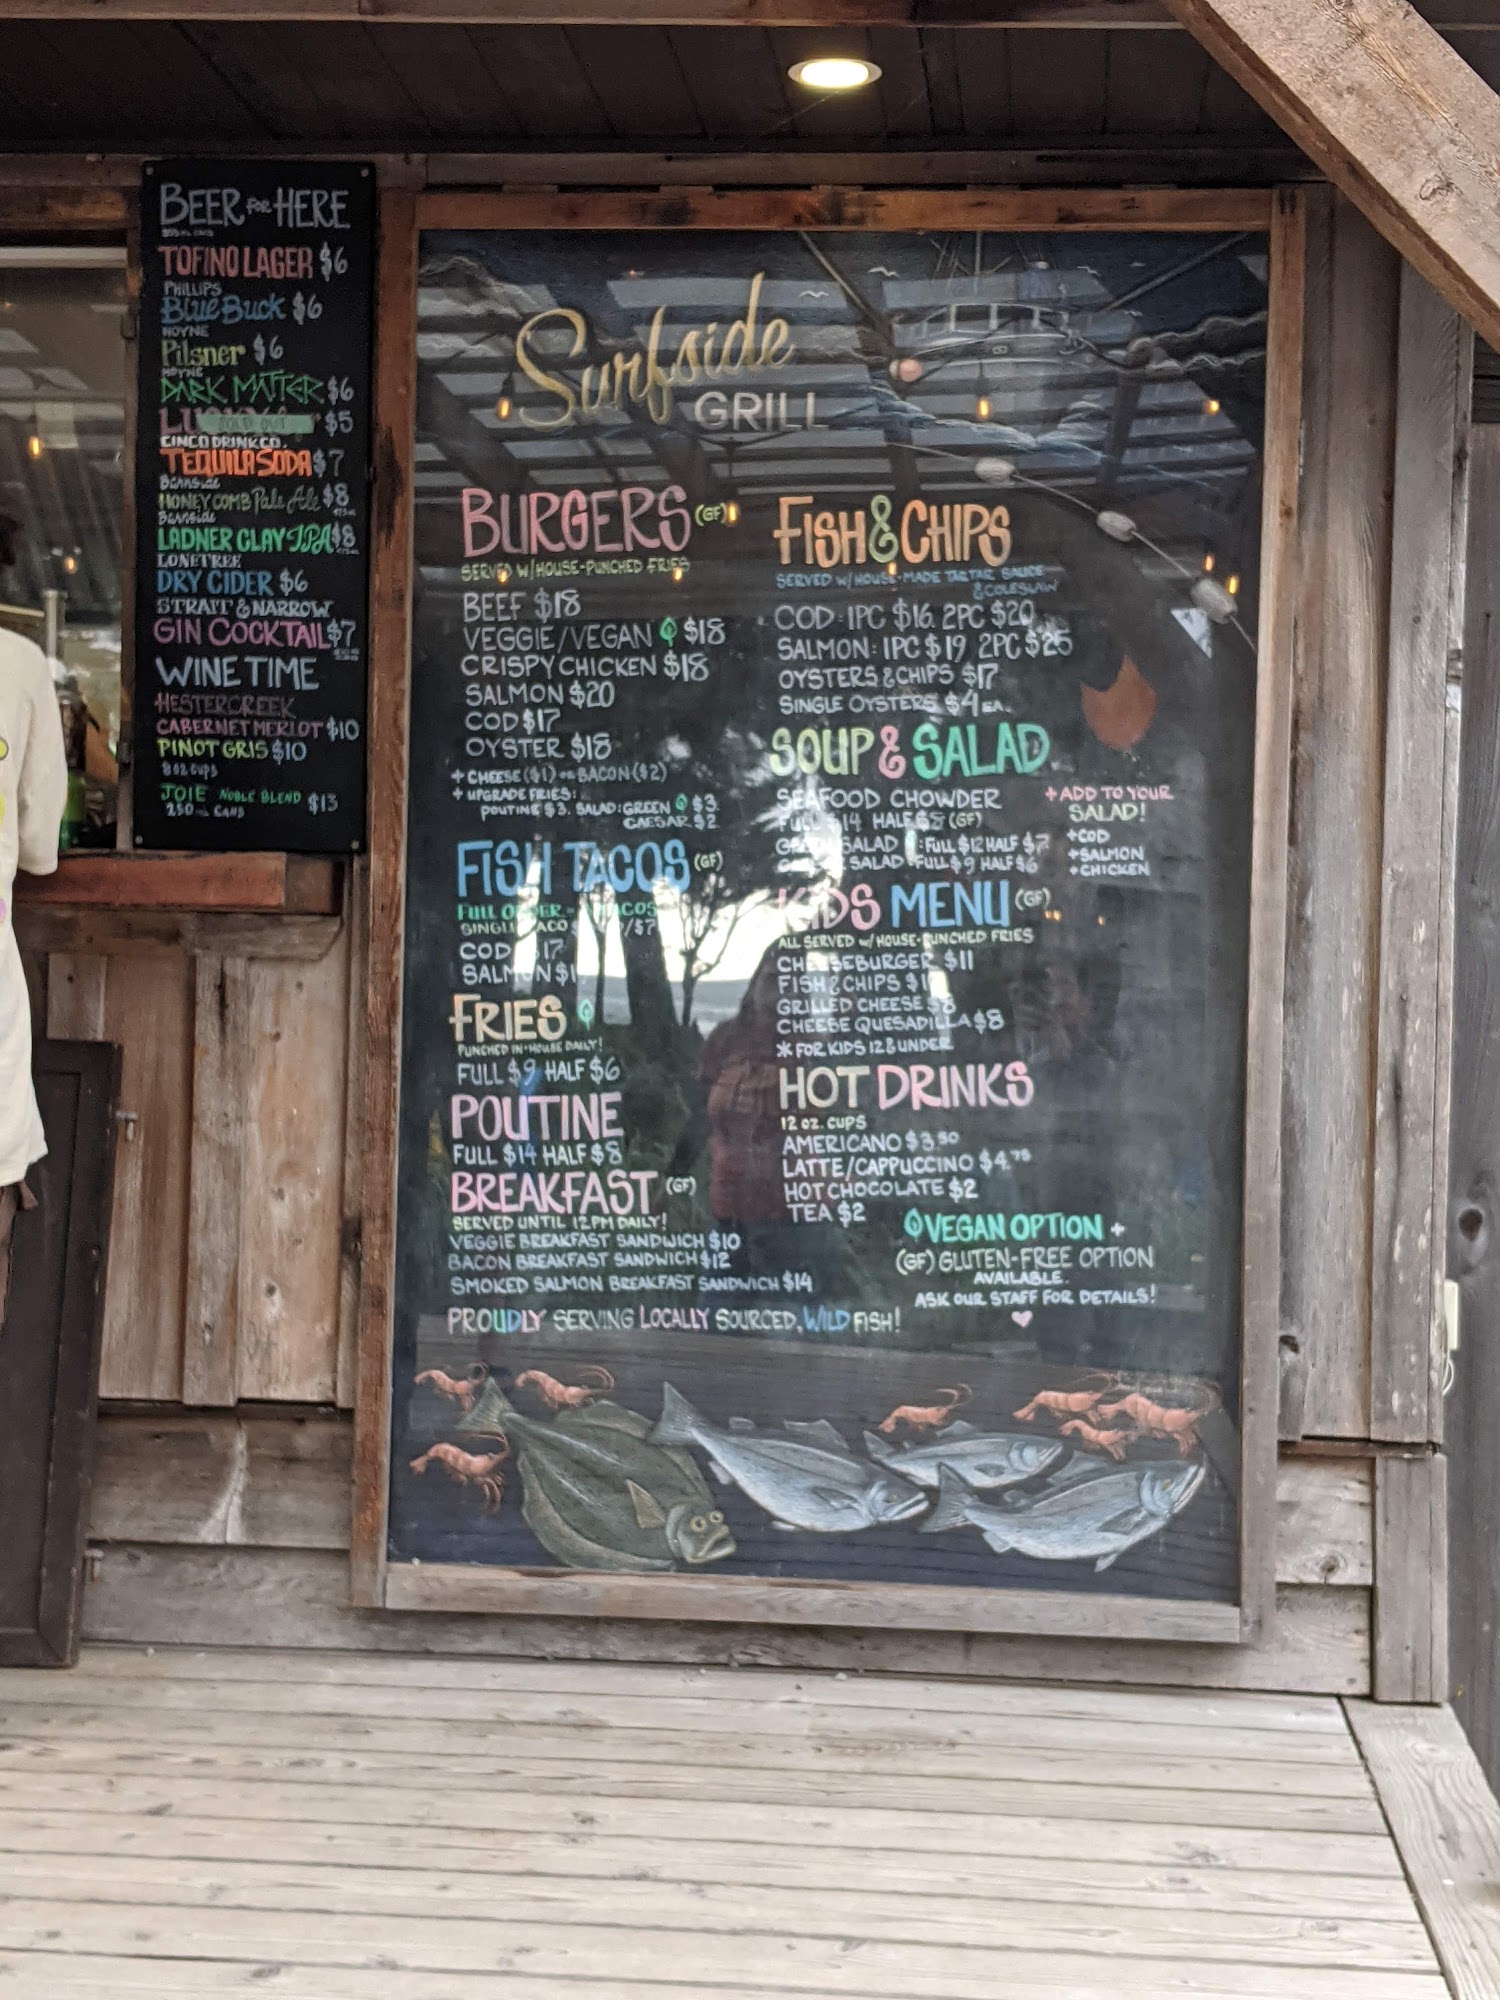 BEER FOR HERE
TOFINO LAGER $6
PHILLIPS
BLUE BUCK $6
HOYNE
Pilsner $6
HOYNE
DARK MATTER $6
$5
CINCO DRINK CO.
TEQUILA SODA $7
Barnside
HONEYCOMB Pale Ale $8
Barnside
LADNER CLAY IPA $8
LONETREE
DRY CIDER $6
STRAIT & NARROW
GIN COCKTAIL $7
WINE TIME
HESTER CREEK
CABERNET MERLOT $10
PINOT GRIS $10
8 OZ CUPS
JOIE NOBLE BLEND $13
250 ML CANS
Surfside
GRILL
BURGERS (GF)
SERVED W/HOUSE-PUNCHED FRIES
BEEF $18
VEGGIE/VEGAN $18
CRISPY CHICKEN $18
SALMON $20
COD $17
OYSTER $18
+ CHEESE ($1) OR BACON ($2)
+ UPGRADE FRIES:
POUTINE $3. SALAD: GREEN $3.
CAESAR $2
FISH TACOS (GF)
FULL ORDER TACOS
SINGLE TACO /$7
COD $17
SALMON
FRIES
PUNCHED IN-HOUSE DAILY!
FULL $9 HALF $6
POUTINE
FULL $14 HALF $8
BREAKFAST (GF)
SERVED UNTIL 12PM DAILY!
VEGGIE BREAKFAST SANDWICH $10
BACON BREAKFAST SANDWICH $12
SMOKED SALMON BREAKFAST SANDWICH $14
PROUDLY SERVING LOCALLY SOURCED, WILD FISH!
FISH & CHIPS
SERVED W/ HOUSE-MADE TARTAR SAUCE
& COLESLAW
COD: 1PC $16. 2PC $20
SALMON: 1PC $19 2PC $25
OYSTERS & CHIPS $17
SINGLE OYSTERS $4 EA.
SOUP & SALAD
SEAFOOD CHOWDER
FULL $14 HALF $8 (GF)
SALAD : FULL $12 HALF $7
SALAD : FULL $9 HALF $6
+ ADD TO YOUR
SALAD!
+COD
+SALMON
+CHICKEN
KIDS MENU (GF)
ALL SERVED W/ HOUSE-PUNCHED FRIES
CHEESEBURGER $11
FISH & CHIPS
GRILLED CHEESE $8
CHEESE QUESADILLA $8
* FOR KIDS 12 & UNDER
HOT DRINKS
12 OZ. CUPS
AMERICANO $3.50
LATTE/CAPPUCCINO $4.75
HOT CHOCOLATE $2
TEA $2
VEGAN OPTION +
(GF) GLUTEN-FREE OPTION
AVAILABLE.
ASK OUR STAFF FOR DETAILS!